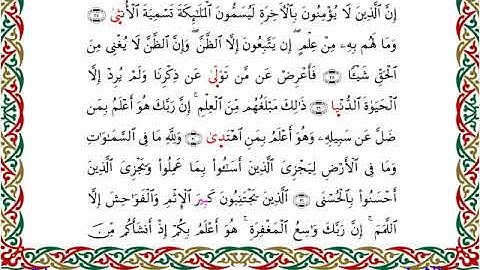 إِنَّ ٱلَّذِينَ لَا يُؤْمِنُونَ بِٱلْأَخِرَةِ لَيُسَمُّونَ ٱلْمَلَـٰٓئِكَةَ تَسْمِيَةَ ٱلْأُنثَىٰ ﴿٢٧﴾
وَمَا لَهُم بِهِۦ مِنْ عِلْمٍ ۖ إِن يَتَّبِعُونَ إِلَّا ٱلظَّنَّ ۖ وَإِنَّ ٱلظَّنَّ لَا يُغْنِى مِنَ
ٱلْحَقِّ شَيْـًٔا ﴿٢٨﴾ فَأَعْرِضْ عَن مَّن تَوَلَّىٰ عَن ذِكْرِنَا وَلَمْ يُرِدْ إِلَّا
ٱلْحَيَوٰةَ ٱلدُّنْيَا ﴿٢٩﴾ ذَٰلِكَ مَبْلَغُهُم مِّنَ ٱلْعِلْمِ ۚ إِنَّ رَبَّكَ هُوَ أَعْلَمُ بِمَن
ضَلَّ عَن سَبِيلِهِۦ وَهُوَ أَعْلَمُ بِمَنِ ٱهْتَدَىٰ ﴿٣٠﴾ وَلِلَّهِ مَا فِى ٱلسَّمَـٰوَٰتِ
وَمَا فِى ٱلْأَرْضِ لِيَجْزِىَ ٱلَّذِينَ أَسَـٰٓـُٔوا۟ بِمَا عَمِلُوا۟ وَيَجْزِىَ ٱلَّذِينَ
أَحْسَنُوا۟ بِٱلْحُسْنَى ﴿٣١﴾ ٱلَّذِينَ يَجْتَنِبُونَ كَبِيرَ ٱلْإِثْمِ وَٱلْفَوَٰحِشَ إِلَّا
ٱللَّمَمَ ۚ إِنَّ رَبَّكَ وَٰسِعُ ٱلْمَغْفِرَةِ ۚ هُوَ أَعْلَمُ بِكُمْ إِذْ أَنشَأَكُم مِّنَ